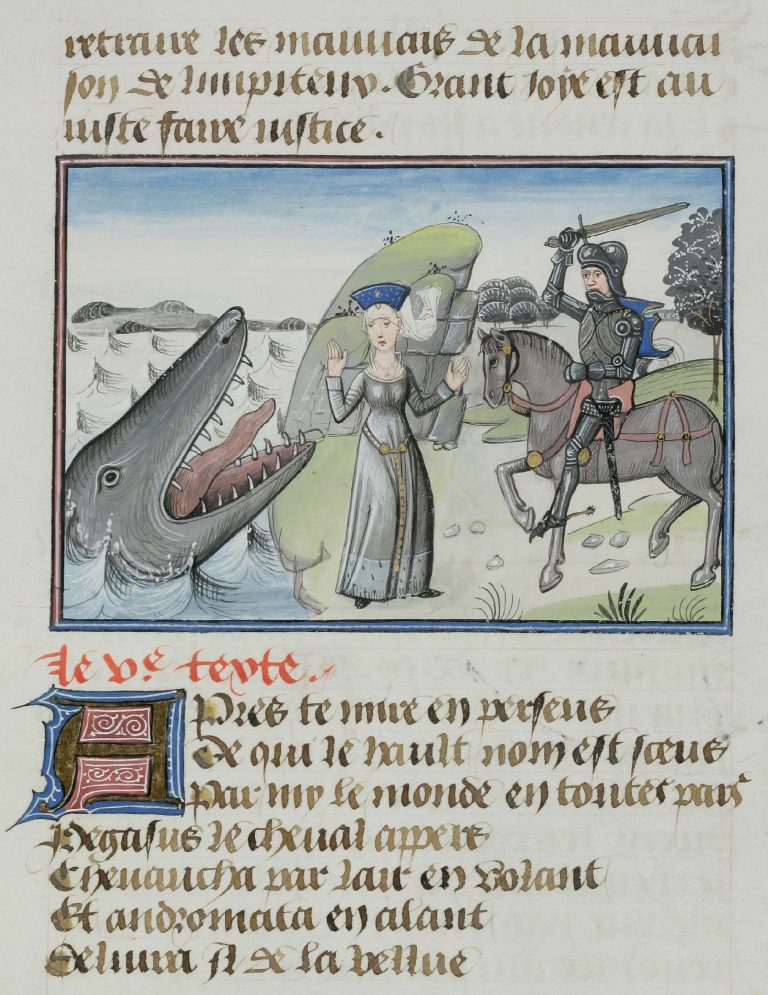 retraire les mauuais de la mauuai
son de limpiteux. Grant ioye est au
iuste faire iustice.
le ve. texte.
Apres te mire en perseus
De qui le hault nom est sceus
Par my le monde en toutes pars
Pegasus le cheual appers
Cheuaucha par lair en volant
Et andromata en alant
Deliura Il de la bellue